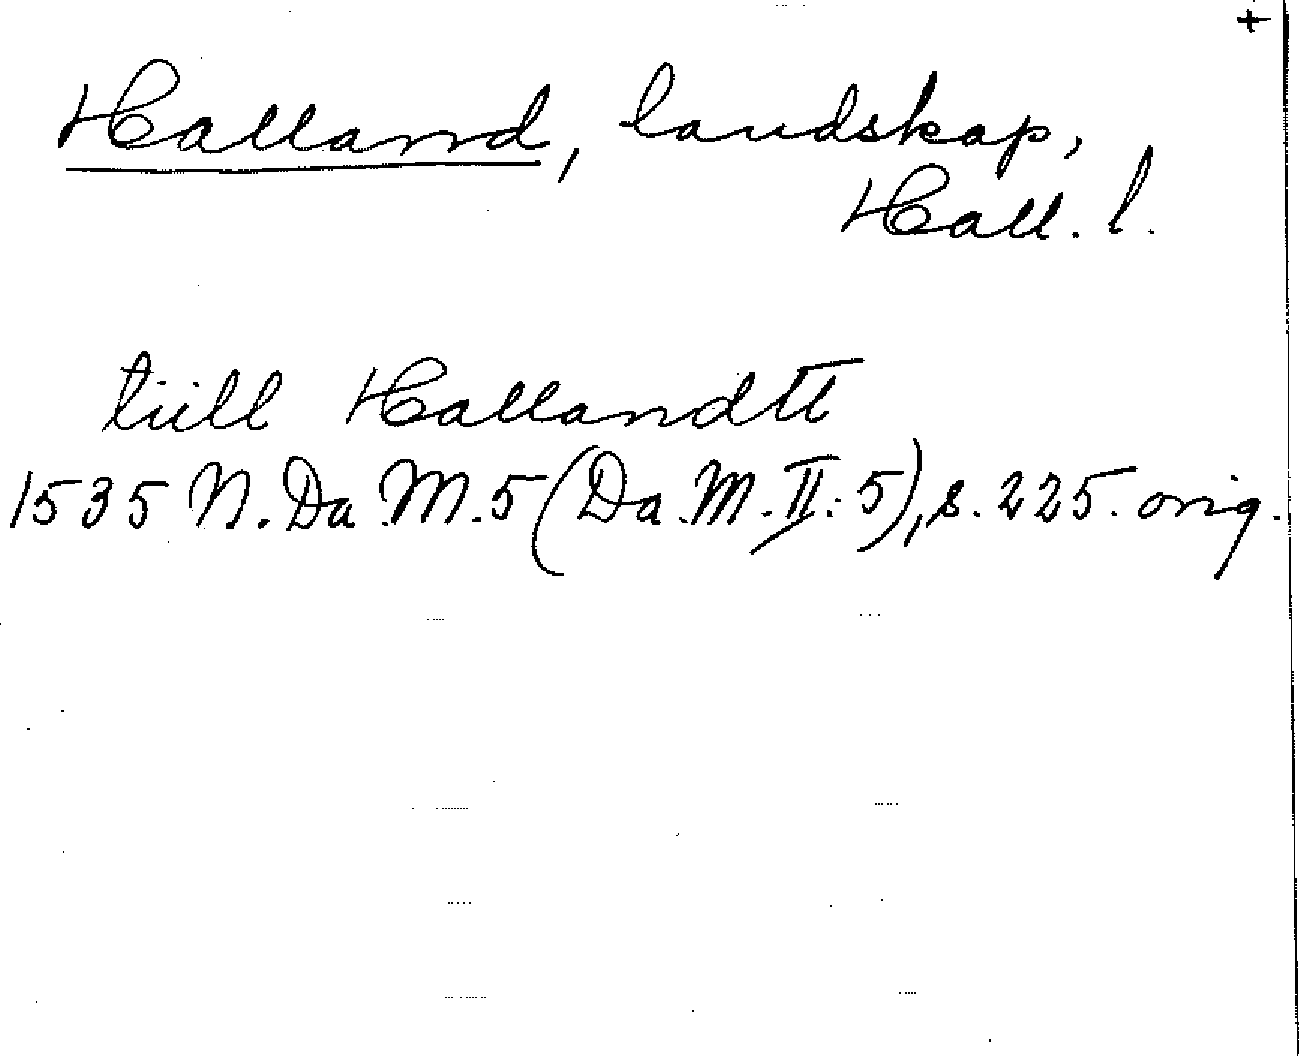 +
Halland, landskap,
Hall. l.
tiill Hallandtt
1535 N. Da. M. 5 (Da. M. II: 5), s. 225. orig.